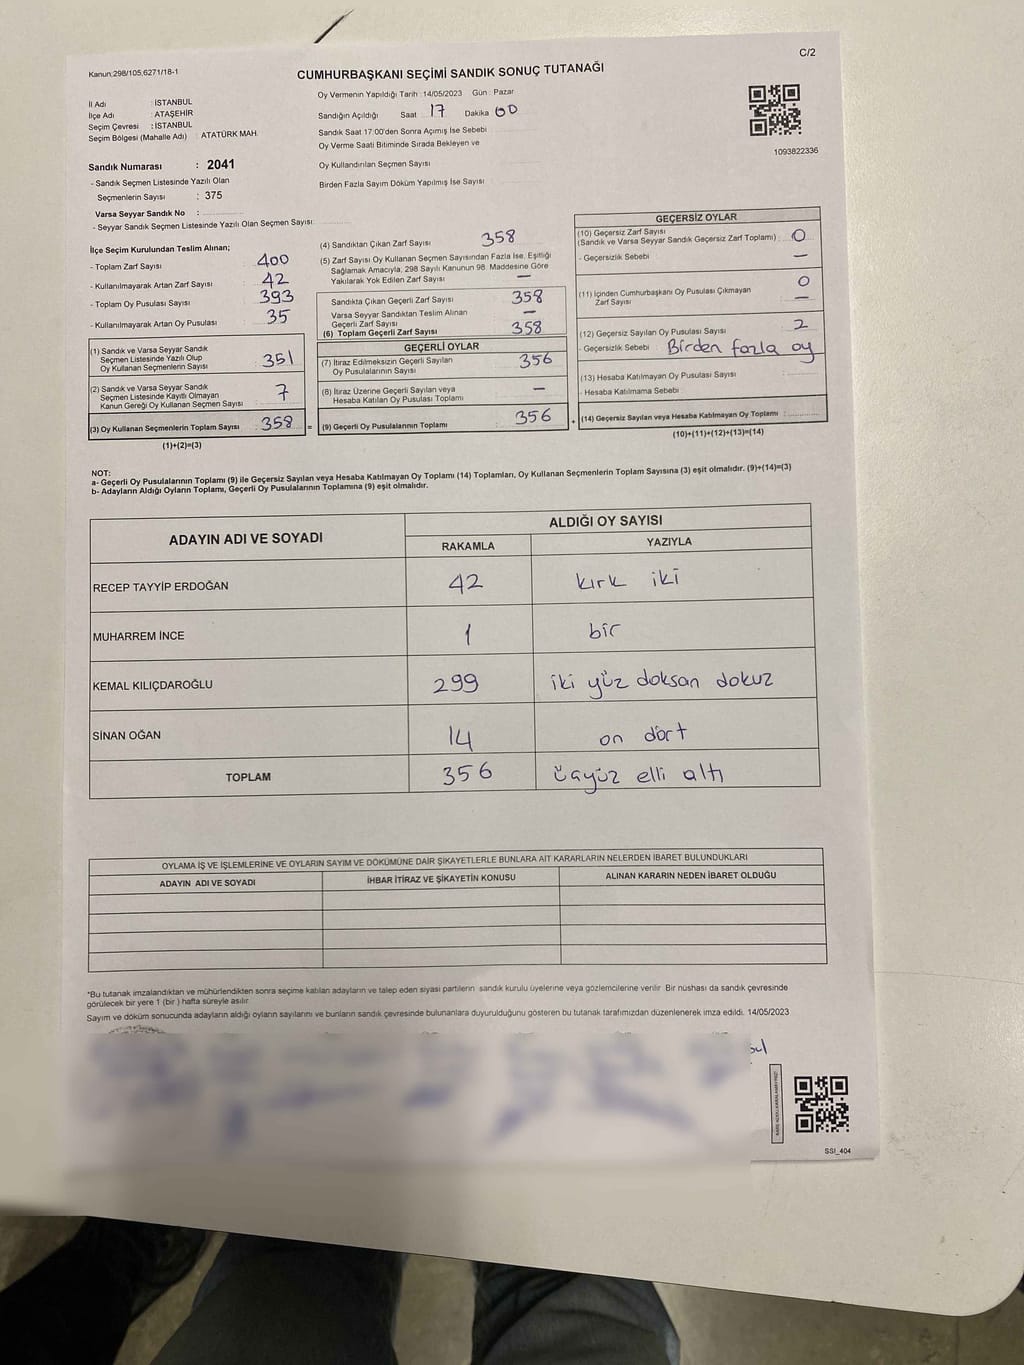 C/2
Kanun:298/105,6271/18-1
CUMHURBAŞKANI SEÇİMİ SANDIK SONUÇ TUTANAĞI
İl Adı : İSTANBUL
İlçe Adı : ATAŞEHİR
Seçim Çevresi : İSTANBUL
Seçim Bölgesi (Mahalle Adı) : ATATÜRK MAH.
Sandık Numarası : 2041
- Sandık Seçmen Listesinde Yazılı Olan
Seçmenlerin Sayısı : 375
Varsa Seyyar Sandık No :
- Seyyar Sandık Seçmen Listesinde Yazılı Olan Seçmen Sayısı:
Oy Vermenin Yapıldığı Tarih :14/05/2023 Gün : Pazar
Sandığın Açıldığı Saat 17 Dakika 00
Sandık Saat 17:00'den Sonra Açımış İse Sebebi
Oy Verme Saati Bitiminde Sırada Bekleyen ve
Oy Kullandırılan Seçmen Sayısı
Birden Fazla Sayım Döküm Yapılmış İse Sayısı
1093822336
İlçe Seçim Kurulundan Teslim Alınan;
- Toplam Zarf Sayısı : 400
- Kullanılmayarak Artan Zarf Sayısı : 42
- Toplam Oy Pusulası Sayısı : 393
- Kullanılmayarak Artan Oy Pusulası : 35
(1) Sandık ve Varsa Seyyar Sandık
Seçmen Listesinde Yazılı Olup
Oy Kullanan Seçmenlerin Sayısı : 351
(2) Sandık ve Varsa Seyyar Sandık
Seçmen Listesinde Kayıtlı Olmayan
Kanun Gereği Oy Kullanan Seçmen Sayısı : 7
(3) Oy Kullanan Seçmenlerin Toplam Sayısı : 358 =
(1)+(2)=(3)
(4) Sandıktan Çıkan Zarf Sayısı 358
(5) Zarf Sayısı Oy Kullanan Seçmen Sayısından Fazla İse, Eşitliği
Sağlamak Amacıyla, 298 Sayılı Kanunun 98. Maddesine Göre
Yakılarak Yok Edilen Zarf Sayısı : —
Sandıkta Çıkan Geçerli Zarf Sayısı : 358
Varsa Seyyar Sandıktan Teslim Alınan
Geçerli Zarf Sayısı : —
(6) Toplam Geçerli Zarf Sayısı : 358
GEÇERLİ OYLAR
(7) İtiraz Edilmeksizin Geçerli Sayılan
Oy Pusulalarının Sayısı : 356
(8) İtiraz Üzerine Geçerli Sayılan veya
Hesaba Katılan Oy Pusulası Toplamı : —
(9) Geçerli Oy Pusulalarının Toplamı : 356 +
GEÇERSİZ OYLAR
(10) Geçersiz Zarf Sayısı
(Sandık ve Varsa Seyyar Sandık Geçersiz Zarf Toplamı) : 0
- Geçersizlik Sebebi —
(11) İçinden Cumhurbaşkanı Oy Pusulası Çıkmayan 0
Zarf Sayısı —
(12) Geçersiz Sayılan Oy Pusulası Sayısı : 2
- Geçersizlik Sebebi Birden fazla oy
(13) Hesaba Katılmayan Oy Pusulası Sayısı :
- Hesaba Katılmama Sebebi
(14) Geçersiz Sayılan veya Hesaba Katılmayan Oy Toplamı :
(10)+(11)+(12)+(13)=(14)
NOT:
a- Geçerli Oy Pusulalarının Toplamı (9) ile Geçersiz Sayılan veya Hesaba Katılmayan Oy Toplamı (14) Toplamları, Oy Kullanan Seçmenlerin Toplam Sayısına (3) eşit olmalıdır. (9)+(14)=(3)
b- Adayların Aldığı Oyların Toplamı, Geçerli Oy Pusulalarının Toplamına (9) eşit olmalıdır.
ADAYIN ADI VE SOYADI ALDIĞI OY SAYISI
RAKAMLA YAZIYLA
RECEP TAYYİP ERDOĞAN 42 kırk iki
MUHARREM İNCE 1 bir
KEMAL KILIÇDAROĞLU 299 iki yüz doksan dokuz
SİNAN OĞAN 14 on dört
TOPLAM 356 üçyüz elli altı
OYLAMA İŞ VE İŞLEMLERİNE VE OYLARIN SAYIM VE DÖKÜMÜNE DAİR ŞİKAYETLERLE BUNLARA AİT KARARLARIN NELERDEN İBARET BULUNDUKLARI
ADAYIN ADI VE SOYADI İHBAR İTİRAZ VE ŞİKAYETİN KONUSU ALINAN KARARIN NEDEN İBARET OLDUĞU
*Bu tutanak imzalandıktan ve mühürlendikten sonra seçime katılan adayların ve talep eden siyasi partilerin sandık kurulu üyelerine veya gözlemcilerine verilir. Bir nüshası da sandık çevresinde
görülecek bir yere 1 (bir ) hafta süreyle asılır.
Sayım ve döküm sonucunda adayların aldığı oyların sayılarını ve bunların sandık çevresinde bulunanlara duyurulduğunu gösteren bu tutanak tarafımızdan düzenlenerek imza edildi. 14/05/2023
SSI_404